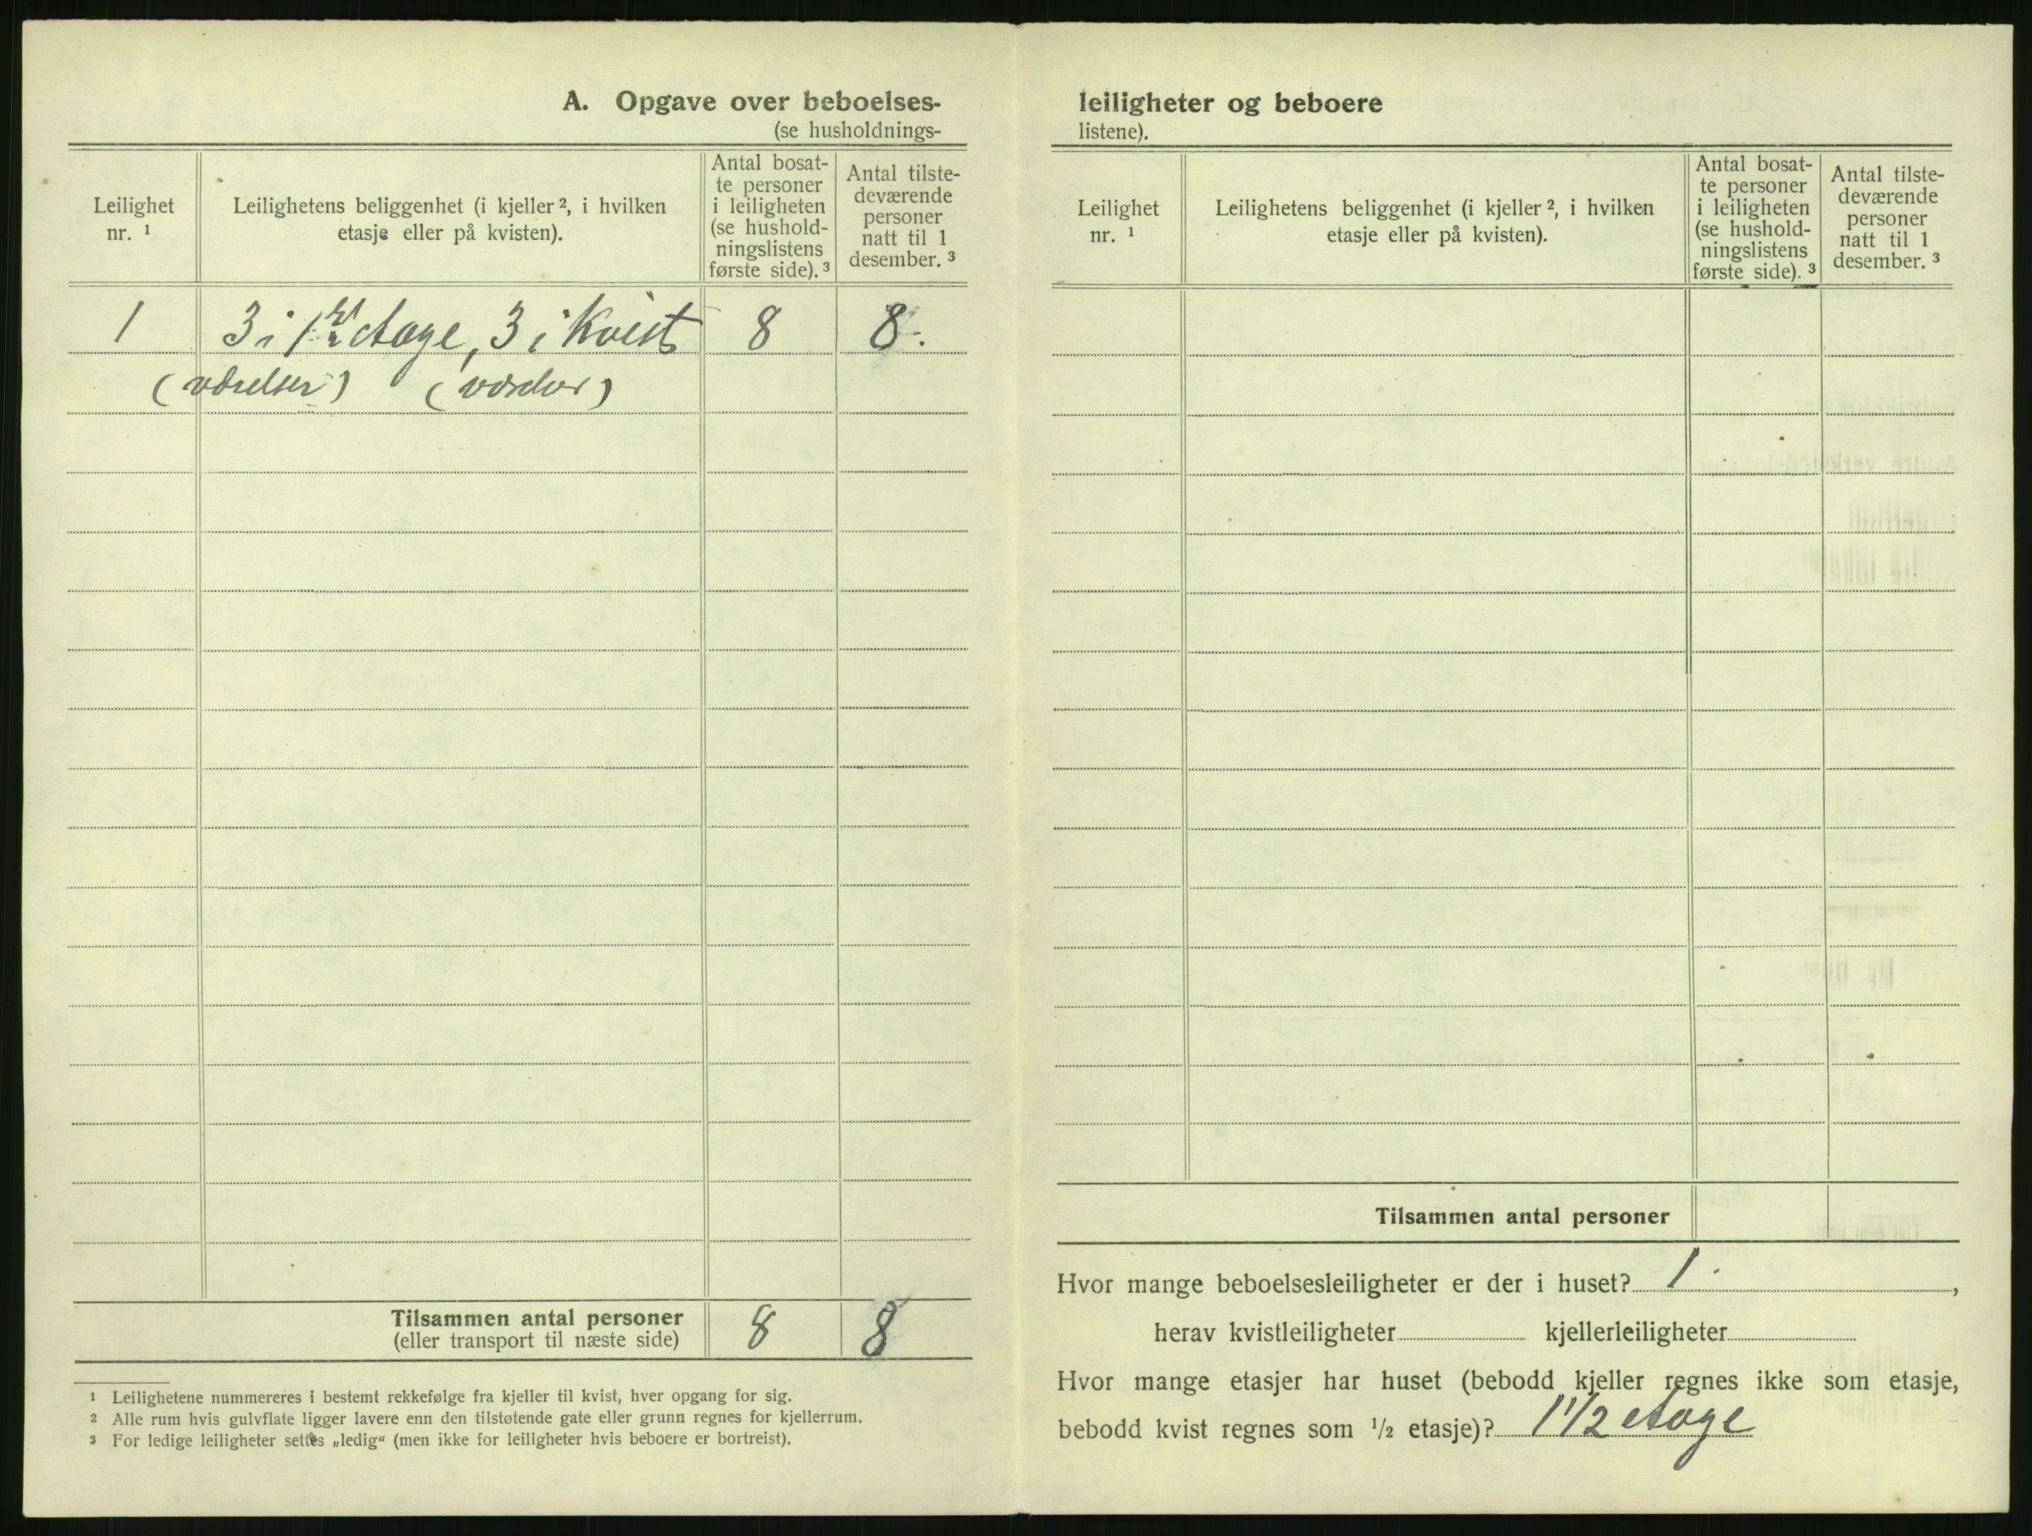 A. Opgave over beboelses-
(se husholdnings-
Leilighet
nr. ¹
Leilighetens beliggenhet (i kjeller ², i hvilken
etasje eller på kvisten).
Antal bosat-
te personer
i leiligheten
(se hushold-
ningslistens
første side). ³
Antal tilste-
deværende
personer
natt til 1
desember. ³
1 3 i 1ste Etage, 3 i Kvist 8 8.
(værelser) (værelser)
Tilsammen antal personer 8 8
(eller transport til næste side)
¹ Leilighetene nummereres i bestemt rekkefølge fra kjeller til kvist, hver opgang for sig.
² Alle rum hvis gulvflate ligger lavere enn den tilstøtende gate eller grunn regnes for kjellerrum.
³ For ledige leiligheter settes „ledig“ (men ikke for leiligheter hvis beboere er bortreist).
leiligheter og beboere
listene).
Leilighet
nr. ¹
Leilighetens beliggenhet (i kjeller ², i hvilken
etasje eller på kvisten).
Antal bosat-
te personer
i leiligheten
(se hushold-
ningslistens
første side). ³
Antal tilste-
deværende
personer
natt til 1
desember. ³
Tilsammen antal personer
Hvor mange beboelsesleiligheter er der i huset? 1.,
herav kvistleiligheter kjellerleiligheter
Hvor mange etasjer har huset (bebodd kjeller regnes ikke som etasje,
bebodd kvist regnes som ½ etasje)? 1 1/2 etage